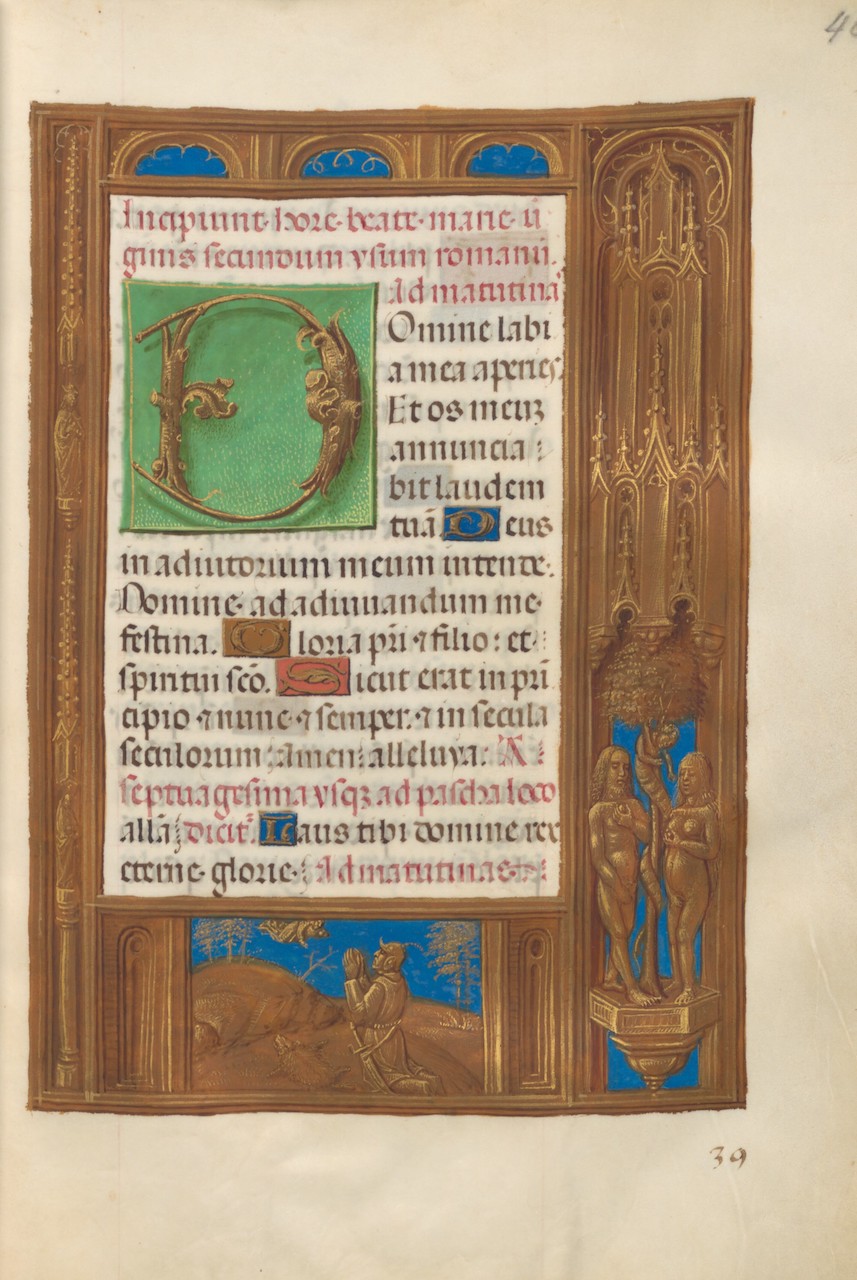 40
Incipiunt· hore· beate· marie· ũ
ginis secundum vsum romanũ.
Ad matutinã
Domine labi
a mea aperies.
Et os meuʒ
annuncia :
bit laudem
tuã. Deus
in adiutorium meum intente.
Domine· ad adiuuandum me·
festina. Gloria pr̃i ⁊ filio : et·
spiritui scõ. Sicut erat in pri̇̃
cipio ⁊ nunc ⁊ semper. ⁊ in secula
seculorum : Amen : alleluya : A :
septuagesima vsqʒ ad pascha loco
allã dicit᷑. Laus tibi domine rex
eterne· glorie· : Ad matutinas
39